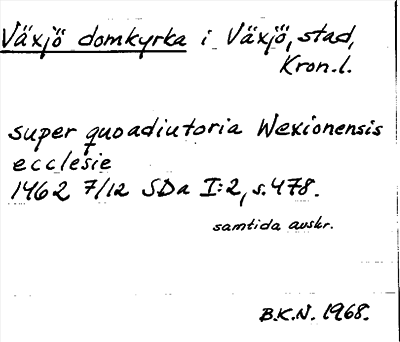 Växjö domkyrka i Växjö, stad,
Kron.l.
super quoadiutoria Wexionensis
ecclesie
1462 7/12 SDa I:2, s.478.
samtida avskr.
B.K.N. 1968.